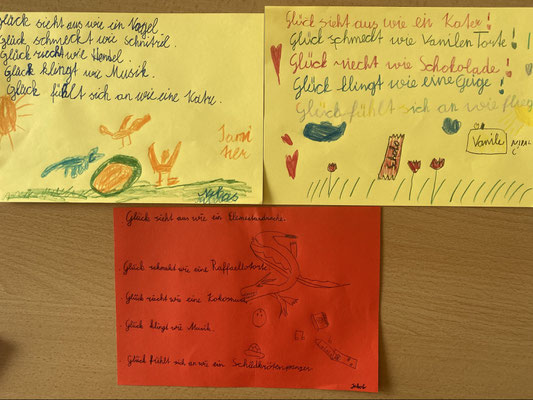 Glück sieht aus wie ein Vogel
Glück schmeckt wie Schnitzel.
Glück riecht wie Henkel.
Glück klingt wie Musik.
Glück fühlt sich an wie eine Katze.
Glück sieht aus wie ein Kater!
Glück schmeckt wie Vanilen Torte!
Glück riecht wie Schokolade!
Glück klingt wie eine Geige!
Glück fühlt sich an wie flieg
Schoko
Vanile
Glück sieht aus wie ein
Glück schmeckt wie eine Raffaellotorte
Glück riecht wie eine Kokosnuss
Glück klingt wie Musik.
Glück fühlt sich an wie ein Schildkrötenpanzer
Jakob